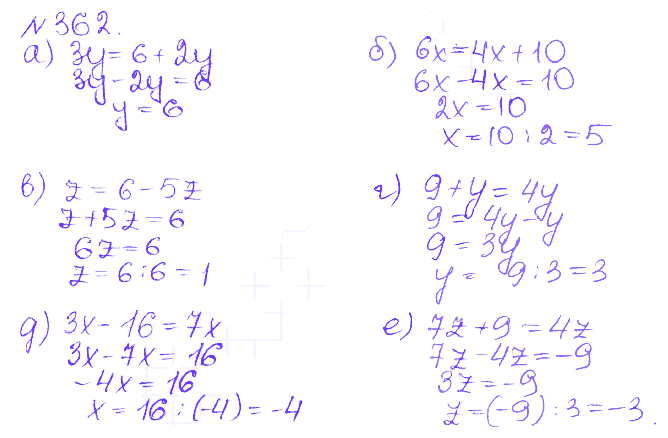 № 362.
а) 3y = 6 + 2y
3y - 2y = 6
y = 6
б) 6x = 4x + 10
6x - 4x = 10
2x = 10
x = 10 : 2 = 5
в) z = 6 - 5z
z + 5z = 6
6z = 6
z = 6 : 6 = 1
г) 9 + y = 4y
9 = 4y - y
9 = 3y
y = 9 : 3 = 3
д) 3x - 16 = 7x
3x - 7x = 16
-4x = 16
x = 16 : (-4) = -4
е) 7z + 9 = 4z
7z - 4z = -9
3z = -9
z = (-9) : 3 = -3.